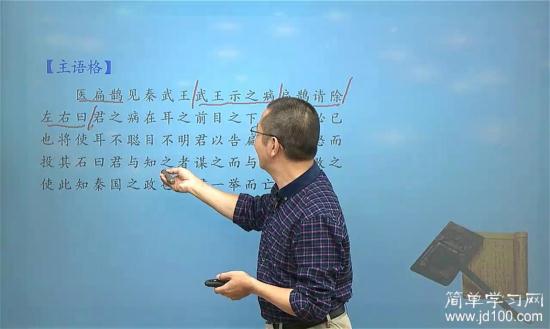 【主语格】
医扁鹊见秦武王武王示之病扁鹊请除
左右曰君之病在耳之前目之下 已
也将使耳不聪目不明君以告扁 而
投其石曰君与知之者谋之而与 败之
使此知秦国之政也 一举而亡
简单学习网
www.jd100.com